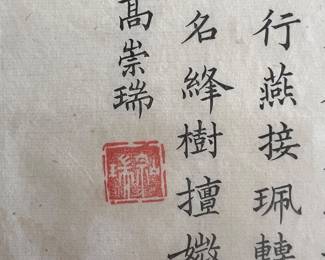 行燕接珮轉
名絳樹擅
高崇瑞